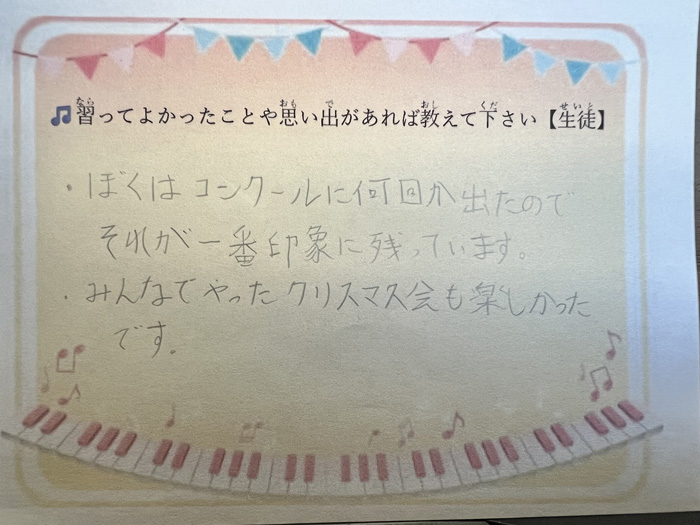 ♫習ってよかったことや思い出があれば教えて下さい【生徒】
・ぼくはコンクールに何回か出たので
それが一番印象に残っています。
・みんなでやったクリスマス会も楽しかった
です。